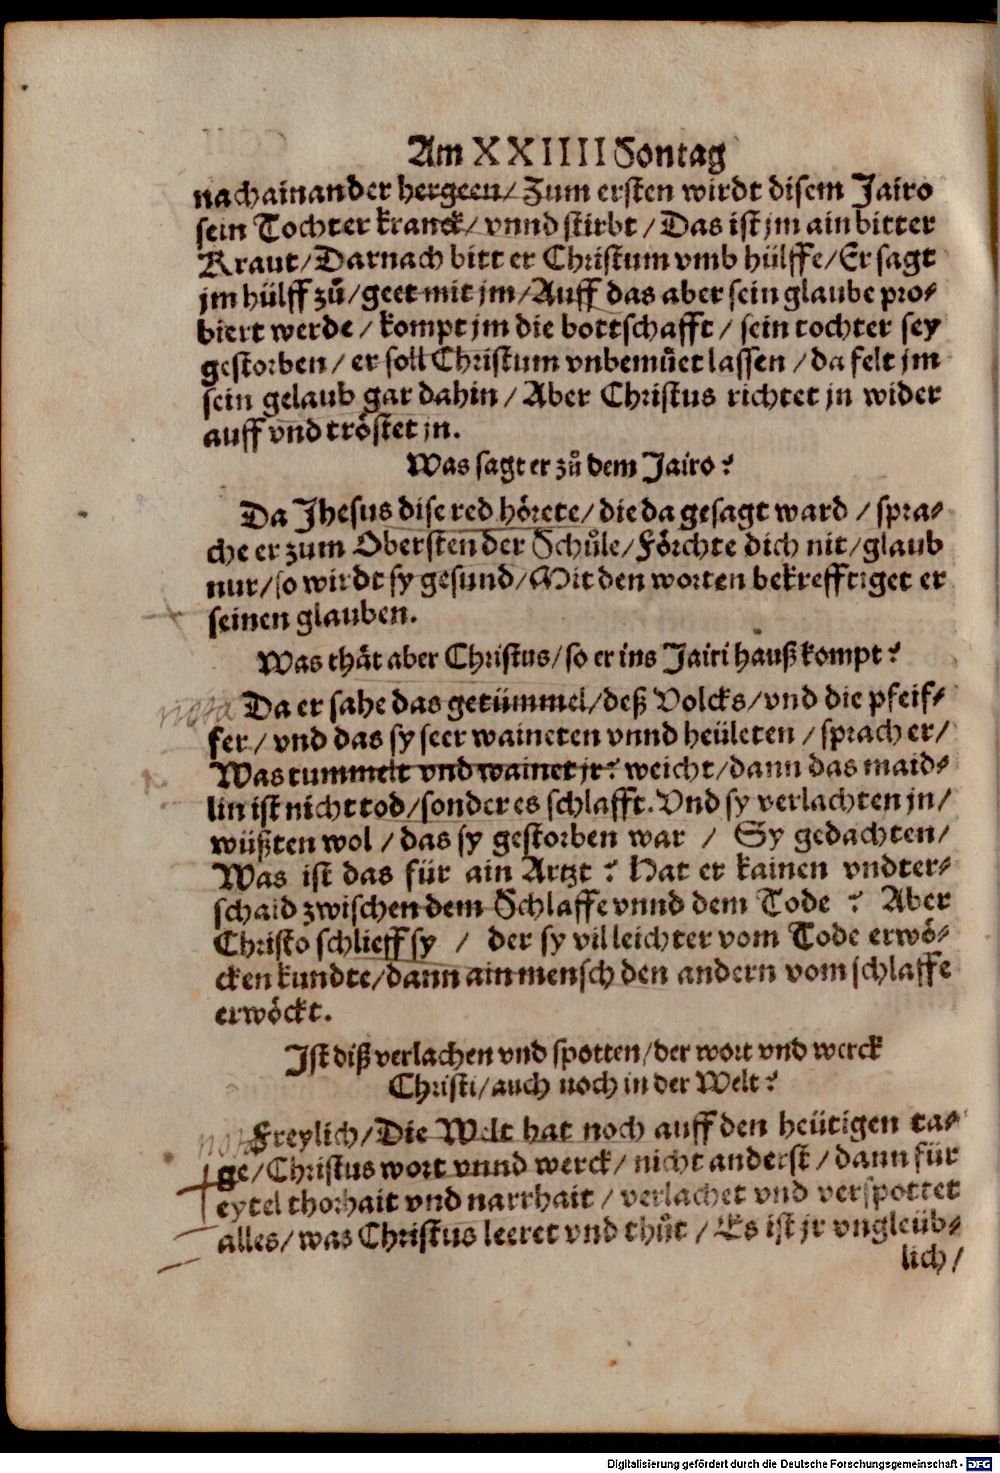 Am XXIIII Sontag
nachainander hergeen/ Zum ersten wirdt disem Jairo
sein Tochter kranck/ vnnd stirbt / Das ist jm ain bitter
Kraut/ Darnach bitt er Christum vmb hülffe/ Er sagt
jm hülff zů/ geet mit jm/ Auff das aber sein glaube pro-
biert werde / kompt jm die bottschafft / sein tochter sey
gestorben / er soll Christum vnbemůet lassen / da felt jm
sein gelaub gar dahin / Aber Christus richtet jn wider
auff vnd tröstet jn.
Was sagt er zů dem Jairo?
Da Jhesus dise red hörete/ die da gesagt ward / spra-
che er zum Obersten der Schůle/ Förchte dich nit/ glaub
nur/ so wirdt sy gesund/ Mit den worten bekrefftiget er
seinen glauben.
Was thät aber Christus/ so er ins Jairi hauß kompt?
nota
Da er sahe das getümmel/ deß Volcks/ vnd die pfeif-
fer/ vnd das sy seer waineten vnnd heületen / sprach er/
Was tummelt vnd wainet jr? weicht/ dann das maid-
lin ist nicht tod/ sonder es schlafft. Vnd sy verlachten jn/
wüßten wol / das sy gestorben war / Sy gedachten/
Was ist das für ain Artzt? Hat er kainen vndter-
schaid zwischen dem Schlaffe vnnd dem Tode? Aber
Christo schlieff sy / der sy vil leichter vom Tode erwö-
cken kundte/ dann ain mensch den andern vom schlaffe
erwöckt.
Jst diß verlachen vnd spotten/ der wort vnd werck
Christi/ auch noch in der Welt?
nota
Freylich/ Die Welt hat noch auff den heütigen ta-
ge/ Christus wort vnnd werck/ nicht anderst / dann für
eytel thorhait vnd narrhait / verlachet vnd verspottet
alles/ was Christus leeret vnd thůt / Es ist jr vngleüb-
lich/
Digitalisierung gefördert durch die Deutsche Forschungsgemeinschaft - DFG